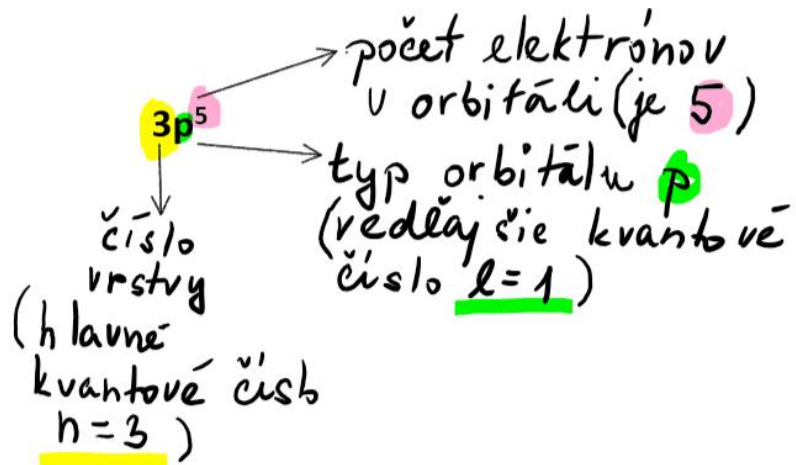 3p⁵
počet elektrónov
v orbitáli (je 5)
typ orbitálu p
(vedľajšie kvantové
číslo l=1)
číslo
vrstvy
(hlavné
kvantové číslo
n=3)